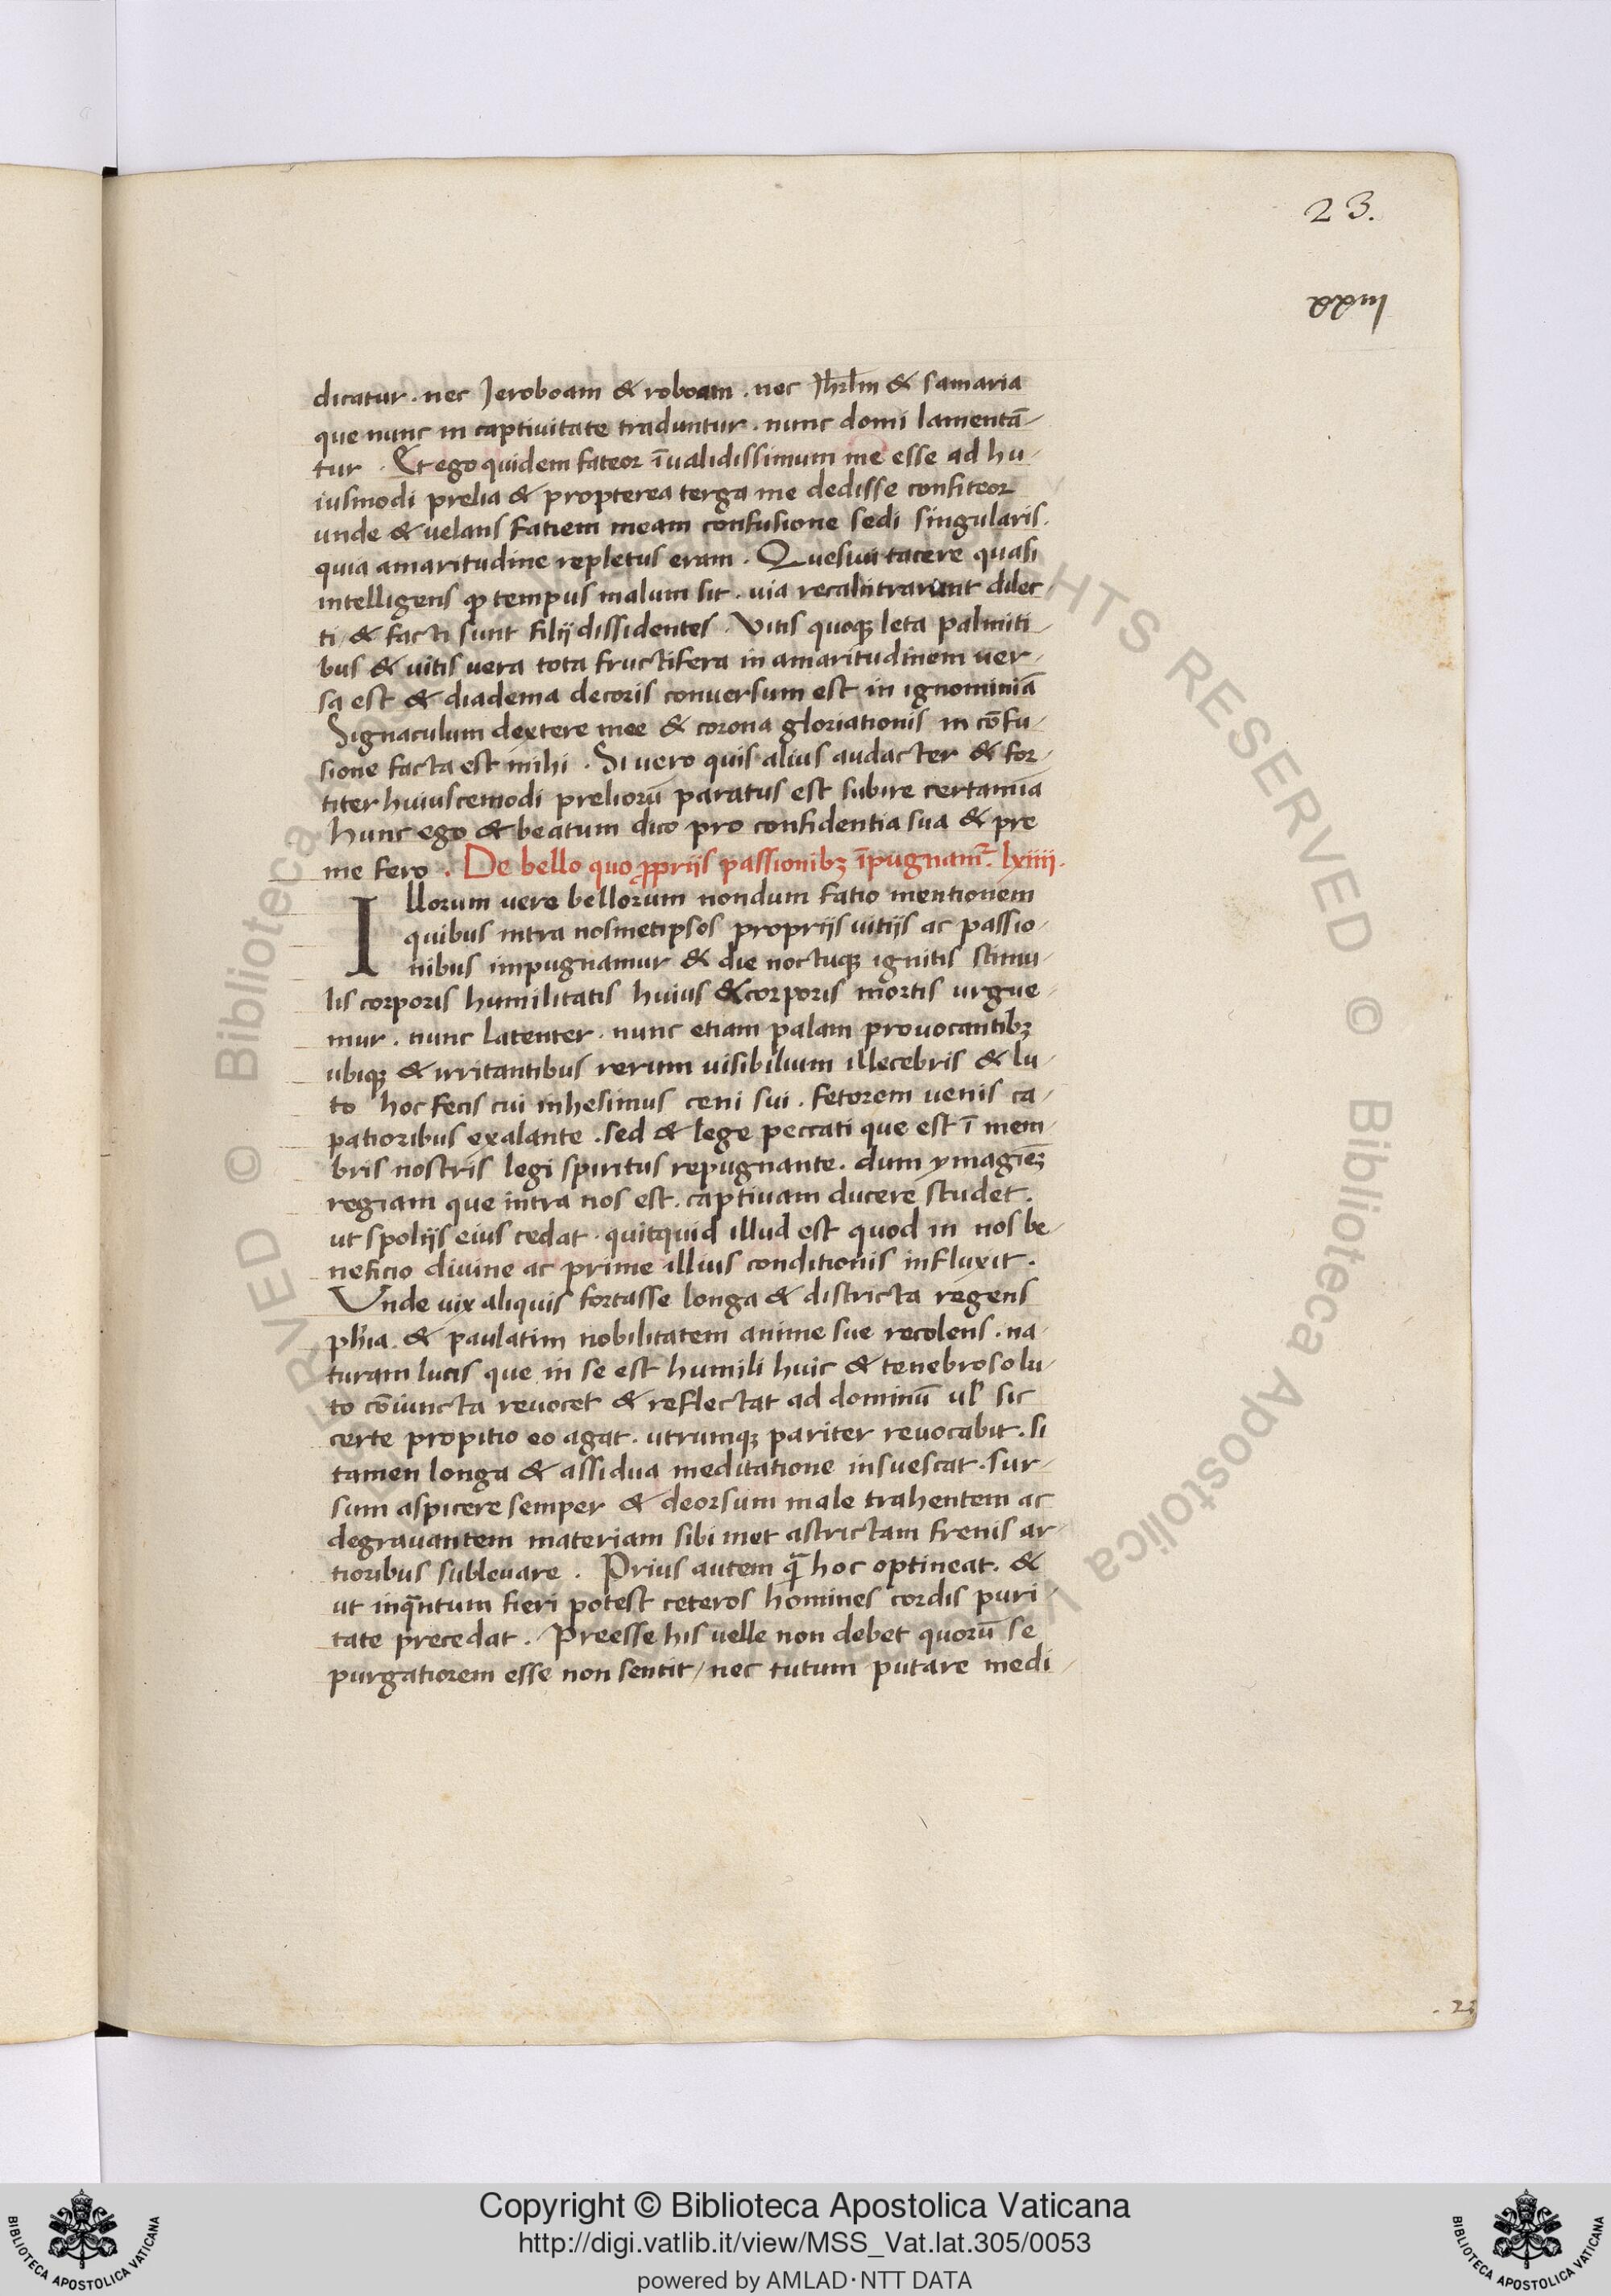 23.
xxiij
dicatur . nec Jeroboam & roboam . nec Jhrlm & samaria
que nunc in captiuitate traduntur . nunc domi lamentā-
tur . Et ego quidem fateor īualidissimum me esse ad hu-
iusmodi prelia & propterea terga me dedisse confiteor
unde & uelans faciem meam confusione sedi singularis.
quia amaritudine repletus eram . Quesiui tacere quasi
intelligens ꝙ tempus malum sit . uia recalcitrarunt dilec
ti / & facti sunt filij dissidentes . Vitis quoqꝫ leta palmiti-
bus & uitis uera tota fructifera in amaritudinem uer-
sa est & diadema decoris conuersum est in ignominiā
Signaculum dextere mee & corona gloriationis in cōfu-
sione facta est mihi . Si uero quis alius audacter & for-
titer huiuscemodi preliorū paratus est subire certamīa
hunc ego & beatum dico pro confidentia sua & pre
me fero . De bello quo ꝓprijs passionibꝫ īpugnamr̄ . lxiiij.
Illorum uere bellorum nondum facio mentionem
quibus intra nosmetipsos proprijs uitijs ac passio-
nibus impugnamur & die noctuqꝫ ignitis stimu-
lis corporis humilitatis huius & corporis mortis urgue-
mur . nunc latenter . nunc etiam palam prouocantibꝫ
ubiqꝫ & irritantibus rerum uisibilium illecebris & lu-
to hoc fecis cui inhesimus ceni sui . fetorem uenis ca-
patioribus exalante . sed & lege peccati que est ī mem-
bris nostris legi spiritus repugnante . dum ymagieꝫ̄
regiam que intra nos est . captiuam ducere studet .
ut spolijs eius cedat . quitquid illud est quod in nos be-
neficio diuine ac prime illius conditionis influxit .
Vnde uix aliquis fortasse longa & districta regens
phīa . & paulatim nobilitatem anime sue recolens . na-
turam lucis que in se est humili huic & tenebroso lu-
to cōiuncta reuocet & reflectat ad dominū ul̄ sic
certe propitio eo agat . utrumqꝫ pariter reuocabit . si
tamen longa & assidua meditatione insuescat . sur-
sum aspicere semper & deorsum male trahentem ac
degrauantem materiam sibi met astrictam frenis ar-
tioribus subleuare . Prius autem q̄ hoc optineat . &
ut inq̄ntum fieri potest ceteros homines cordis puri-
tate precedat . Preesse his uelle non debet quorū se
purgatiorem esse non sentit / nec tutum putare medi-
. 23
Copyright © Biblioteca Apostolica Vaticana
http://digi.vatlib.it/view/MSS_Vat.lat.305/0053
powered by AMLAD·NTT DATA